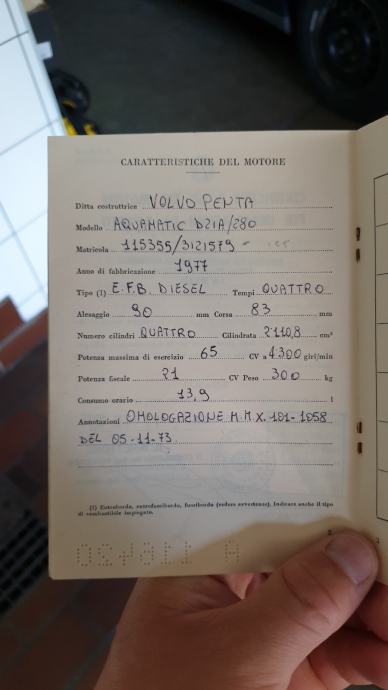 CARATTERISTICHE DEL MOTORE
Ditta costruttrice VOLVO PENTA
Modello AQUAMATIC D21A/280
Matricola 115355/3121579
Anno di fabbricazione 1977
Tipo (1) E.F.B. DIESEL Tempi QUATTRO
Alesaggio 90 mm Corsa 83 mm
Numero cilindri QUATTRO Cilindrata 2110,8 cm³
Potenza massima di esercizio 65 CV a 4300 giri/min
Potenza fiscale 21 CV Peso 300 kg
Consumo orario 13,9 l
Annotazioni OMOLOGAZIONE M.M.X. 101-1058
DEL 05-11-73
(1) Entrobordo, entrofuoribordo, fuoribordo (vedere avvertenze). Indicare anche il tipo
di combustibile impiegato.